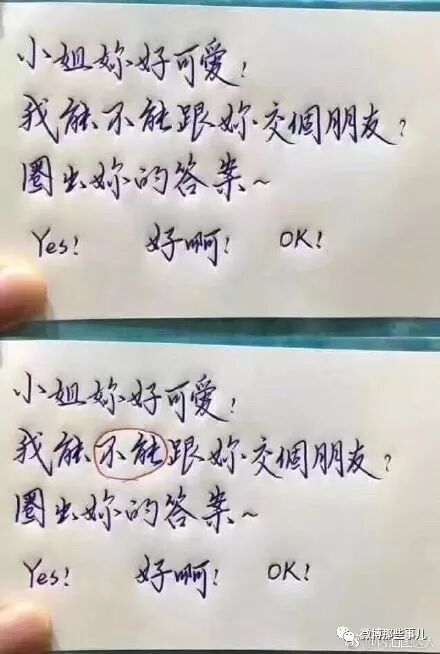 小姐妳好可爱!
我能不能跟妳交個朋友?
圈出妳的答案~
Yes! 好啊! OK!
小姐妳好可爱!
我能不能跟妳交個朋友?
圈出妳的答案~
Yes! 好啊! OK!
微博那些事儿